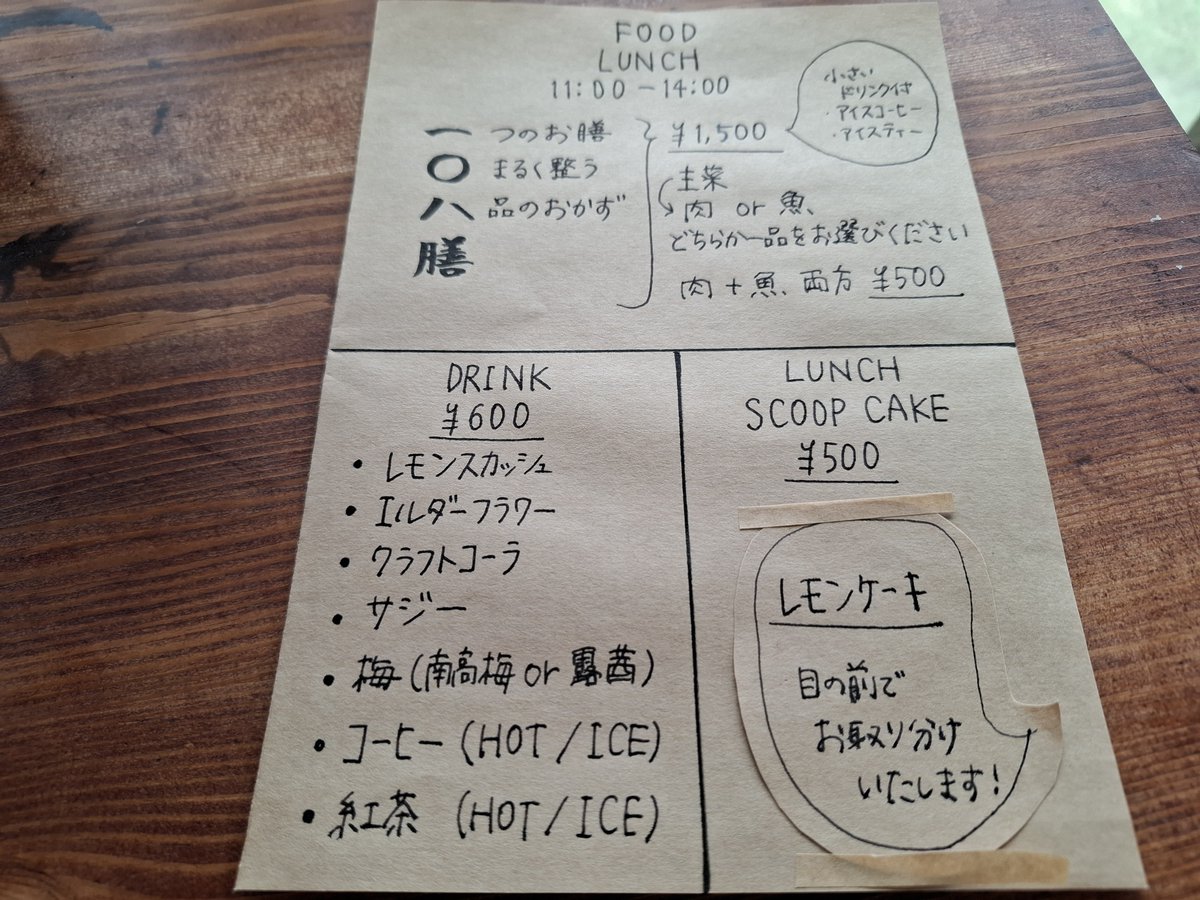 FOOD
LUNCH
11:00-14:00
一つのお膳
〇まるく整う
八品のおかず
膳
¥1,500
小さい
ドリンク付
・アイスコーヒー
・アイスティー
主菜
肉 or 魚、
どちらか一品をお選びください
肉+魚、両方 ¥500
DRINK
¥600
・レモンスカッシュ
・エルダーフラワー
・クラフトコーラ
・サジー
・梅(南高梅 or 露茜)
・コーヒー(HOT/ICE)
・紅茶 (HOT/ICE)
LUNCH
SCOOP CAKE
¥500
レモンケーキ
目の前で
お取り分け
いたします!